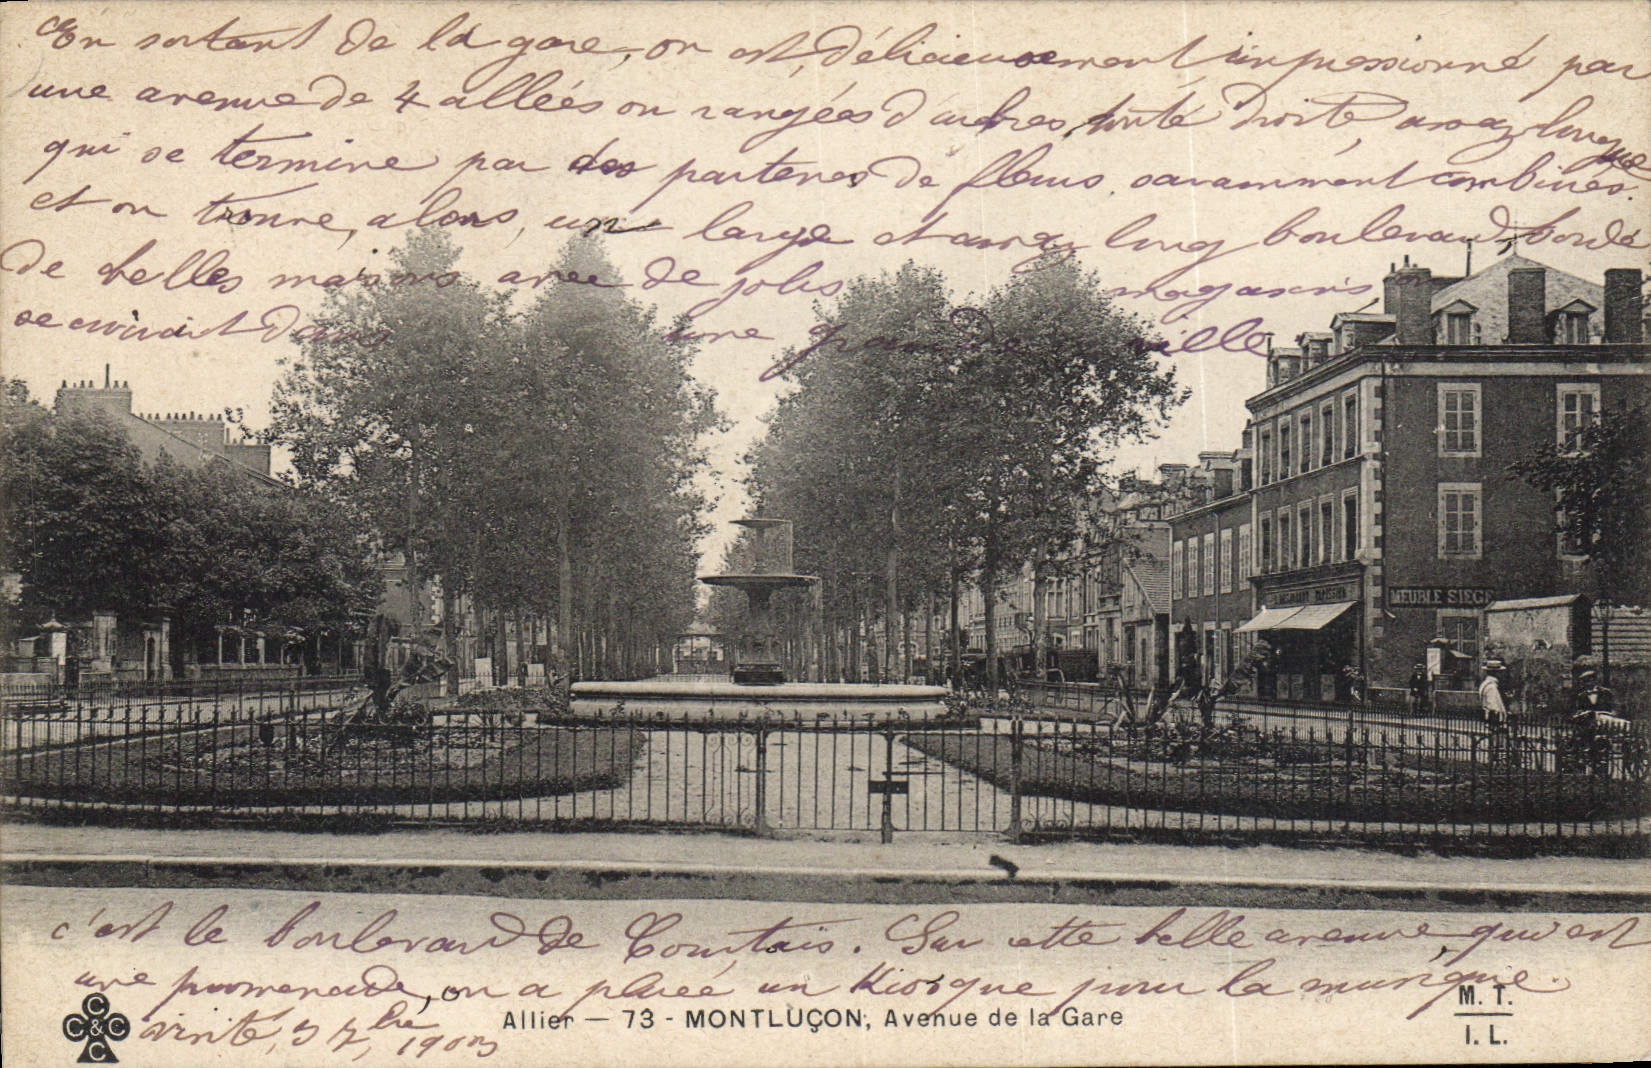 En sortant de la gare, on est délicieusement impressionné par
une avenue de 4 allées ou rangées d'arbres, toute droite, assez longue
qui se termine par des parterres de fleurs savamment combinés.
et on trouve, alors, un large et assez long boulevard, bordé
de belles maisons avec de jolis magasins on
se croirait dans une grande ville
MEUBLE SIEGE
c'est le boulevard de Courtais. Sur cette belle avenue, qui est
une promenade, on a placé un Kiosque pour la musique.
visité, 5 7bre 1903
C C & C C
Allier — 73 - MONTLUÇON, Avenue de la Gare
M. T.
I. L.